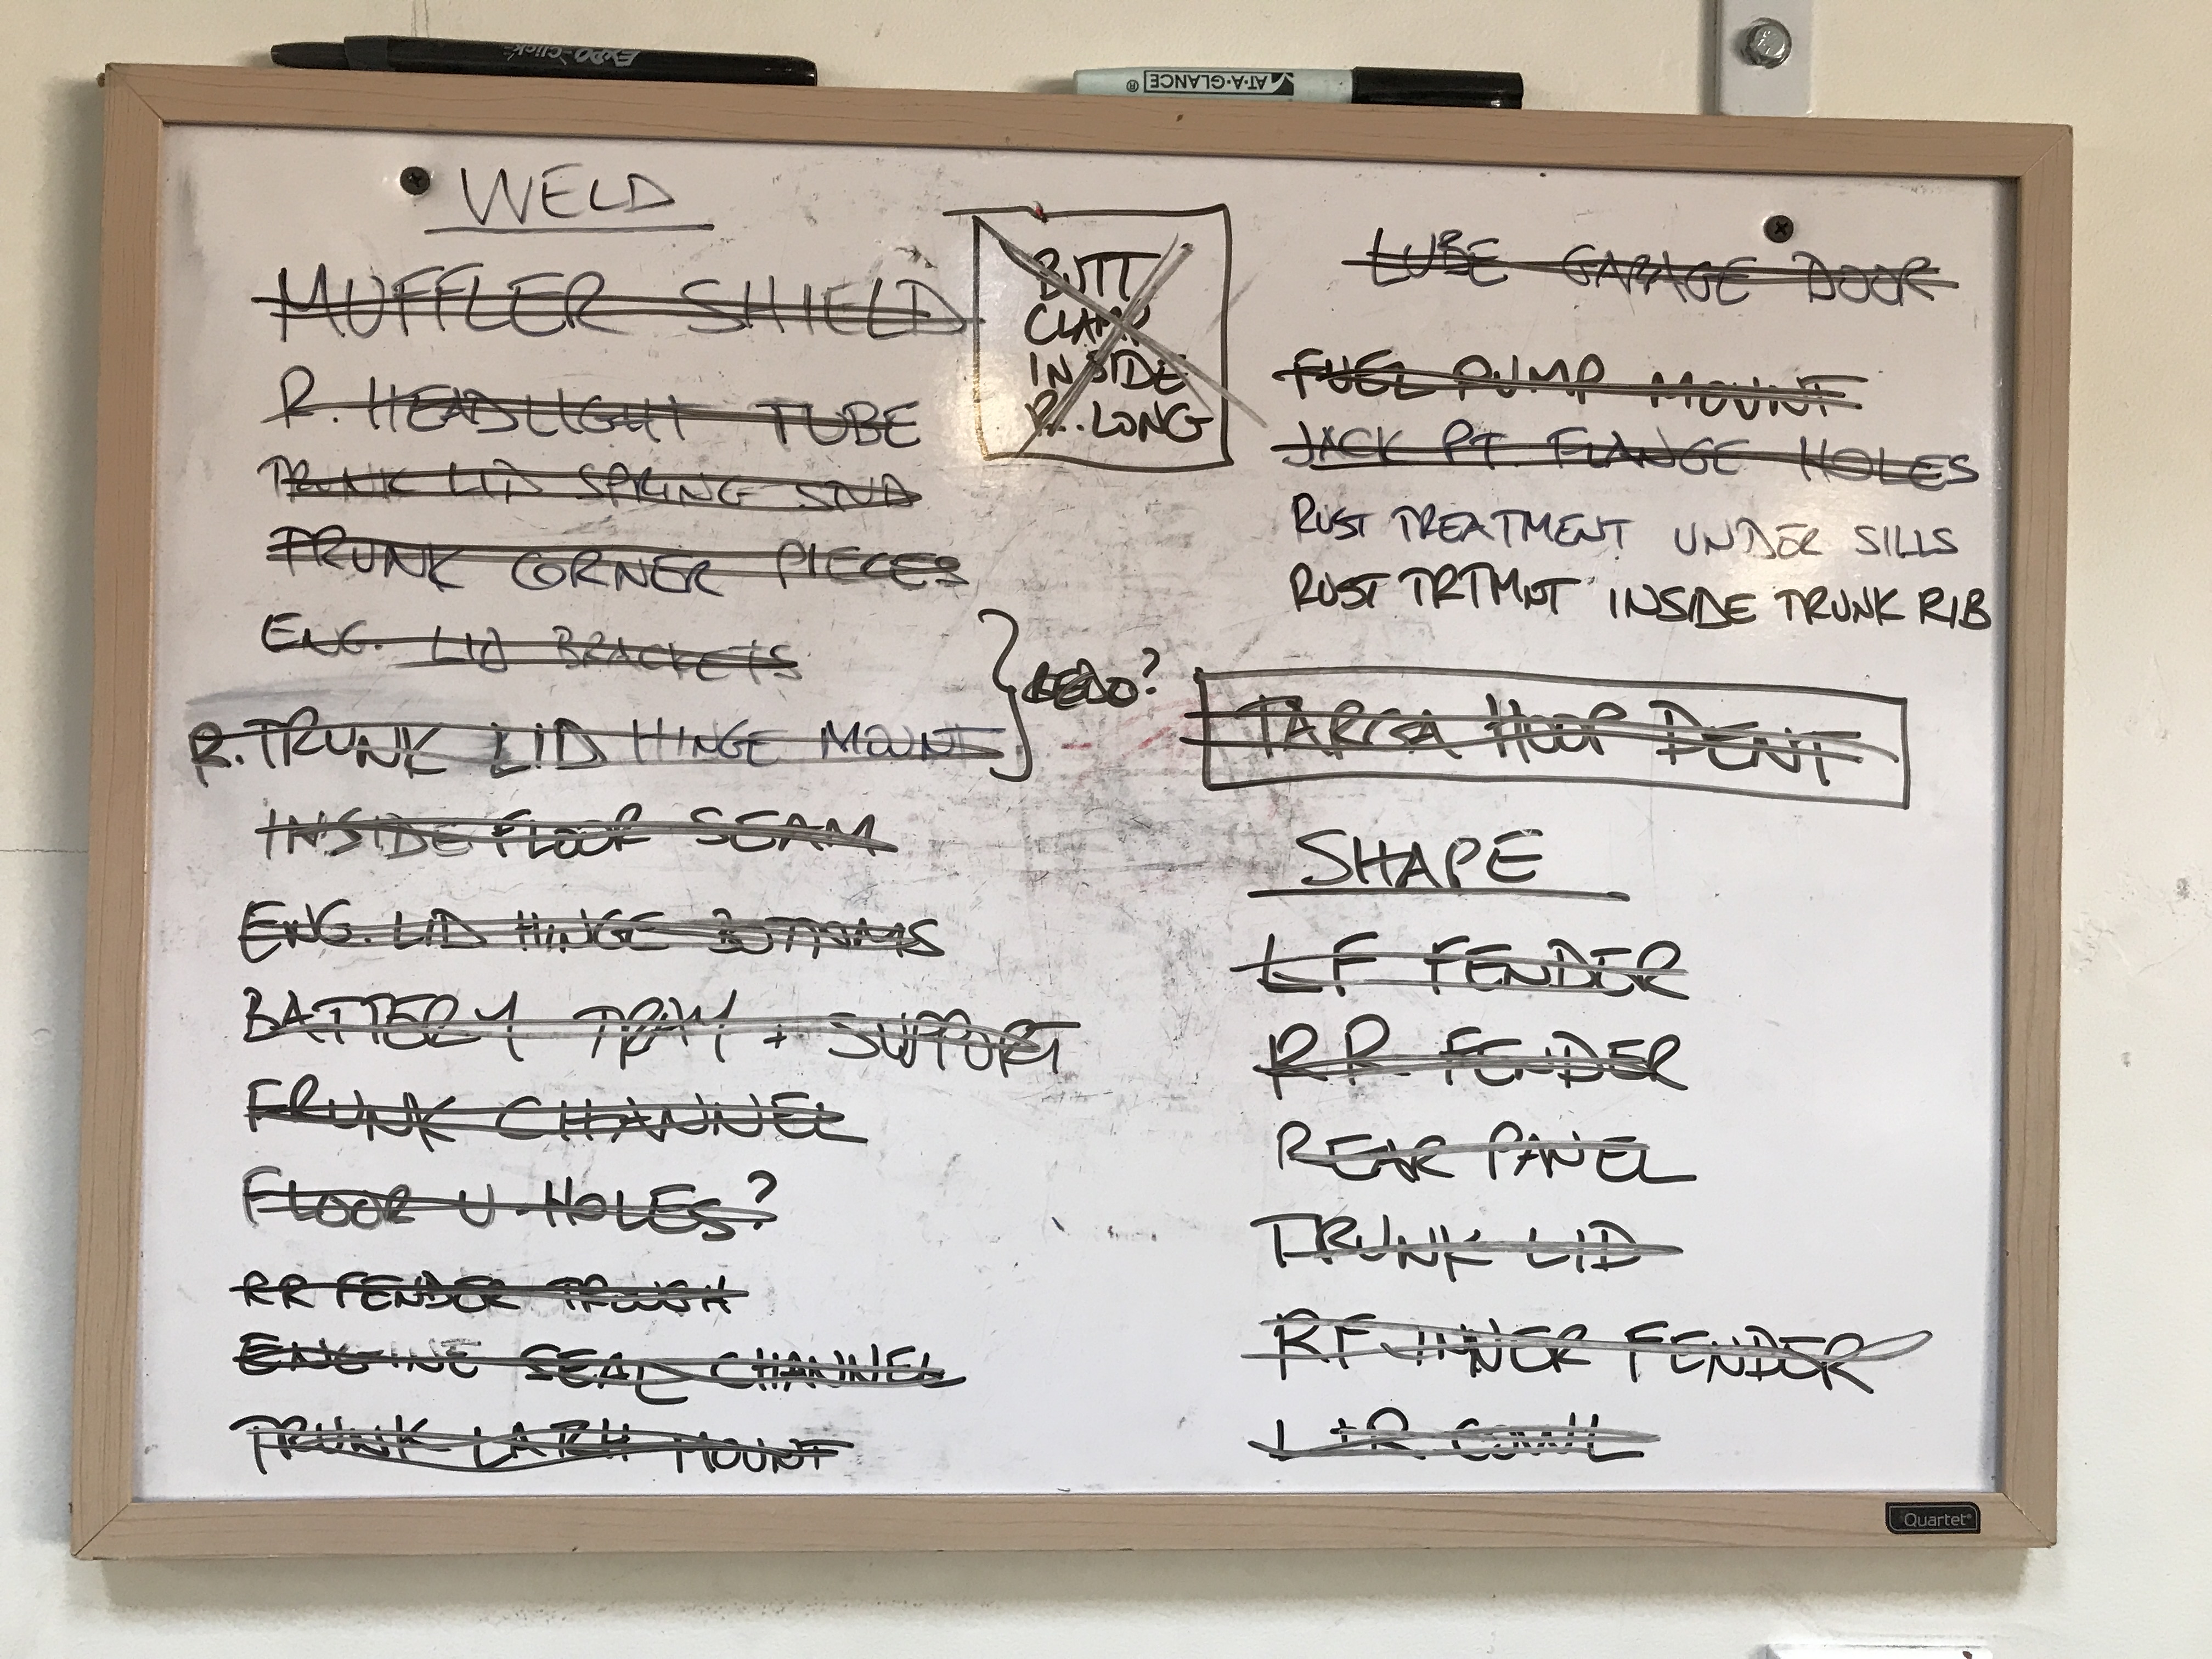 EXPO Click
AT-A-GLANCE®
WELD
MUFFLER SHIELD
R. HEADLIGHT TUBE
TRUNK LID SPRING STUD
TRUNK CORNER PIECES
ENG. LID BRACKETS
R. TRUNK LID HINGE MOUNT
REDO?
INSIDE FLOOR SEAM
ENG. LID HINGE BOTTOMS
BATTERY TRAY + SUPPORT
FRUNK CHANNEL
FLOOR U-HOLES?
RR FENDER TROUGH
ENGINE SEAL CHANNEL
TRUNK LATCH MOUNT
BUTT
CLAMP
INSIDE
R. LONG
LUBE GARAGE DOOR
FUEL PUMP MOUNT
JACK PT. FLANGE HOLES
RUST TREATMENT UNDER SILLS
RUST TRTMNT INSIDE TRUNK RIB
TARGA HOOP DENT
SHAPE
LF FENDER
RR FENDER
REAR PANEL
TRUNK LID
RF INNER FENDER
L+R COWL
Quartet